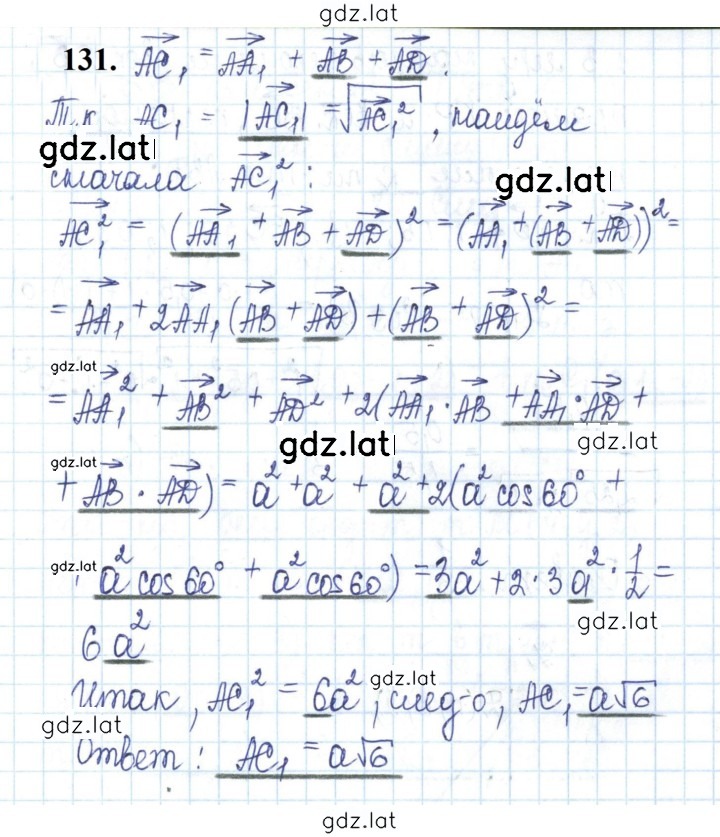 gdz.lat
131. AC₁ = AA₁ + AB + AD.
Т.к AC₁ = |AC₁| = √AC₁², найдём
gdz.lat
сначала AC₁²:
gdz.lat
AC₁² = (AA₁ + AB + AD)² = (AA₁ + (AB + AD))² =
= AA₁ + 2AA₁(AB + AD) + (AB + AD)² =
gdz.lat
= AA₁² + AB² + AD² + 2(AA₁ · AB + AA₁ · AD +
gdz.lat
gdz.lat
gdz.lat
+ AB · AD) = a² + a² + a² + 2(a² cos 60° +
gdz.lat
a² cos 60° + a² cos 60°) = 3a² + 2 · 3a² · 1/2 =
gdz.lat
6a²
gdz.lat
Итак, AC₁² = 6a², след-о, AC₁ = a√6
gdz.lat
Ответ: AC₁ = a√6
gdz.lat